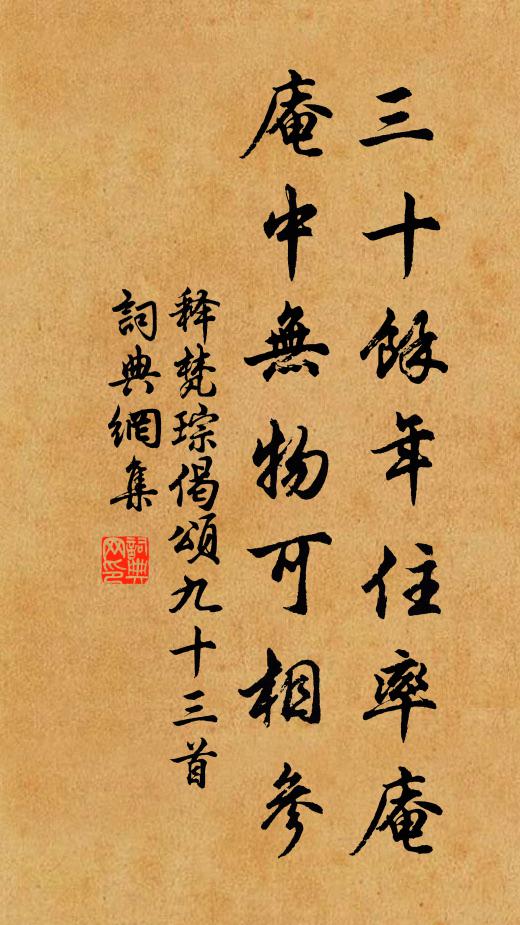 三十餘年住率庵
庵中無物可相參
释梵琮偈頌九十三首
詞典網集
詞典网印